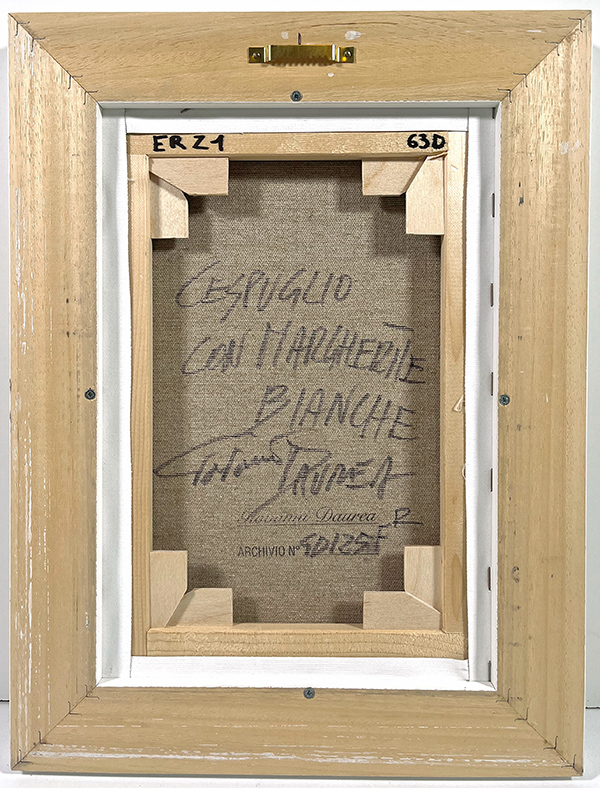 ERZ1 63D
CESPUGLIO
CON MARGHERITE
BIANCHE
DAUREA
Giovanni Daurea
ARCHIVIO N°